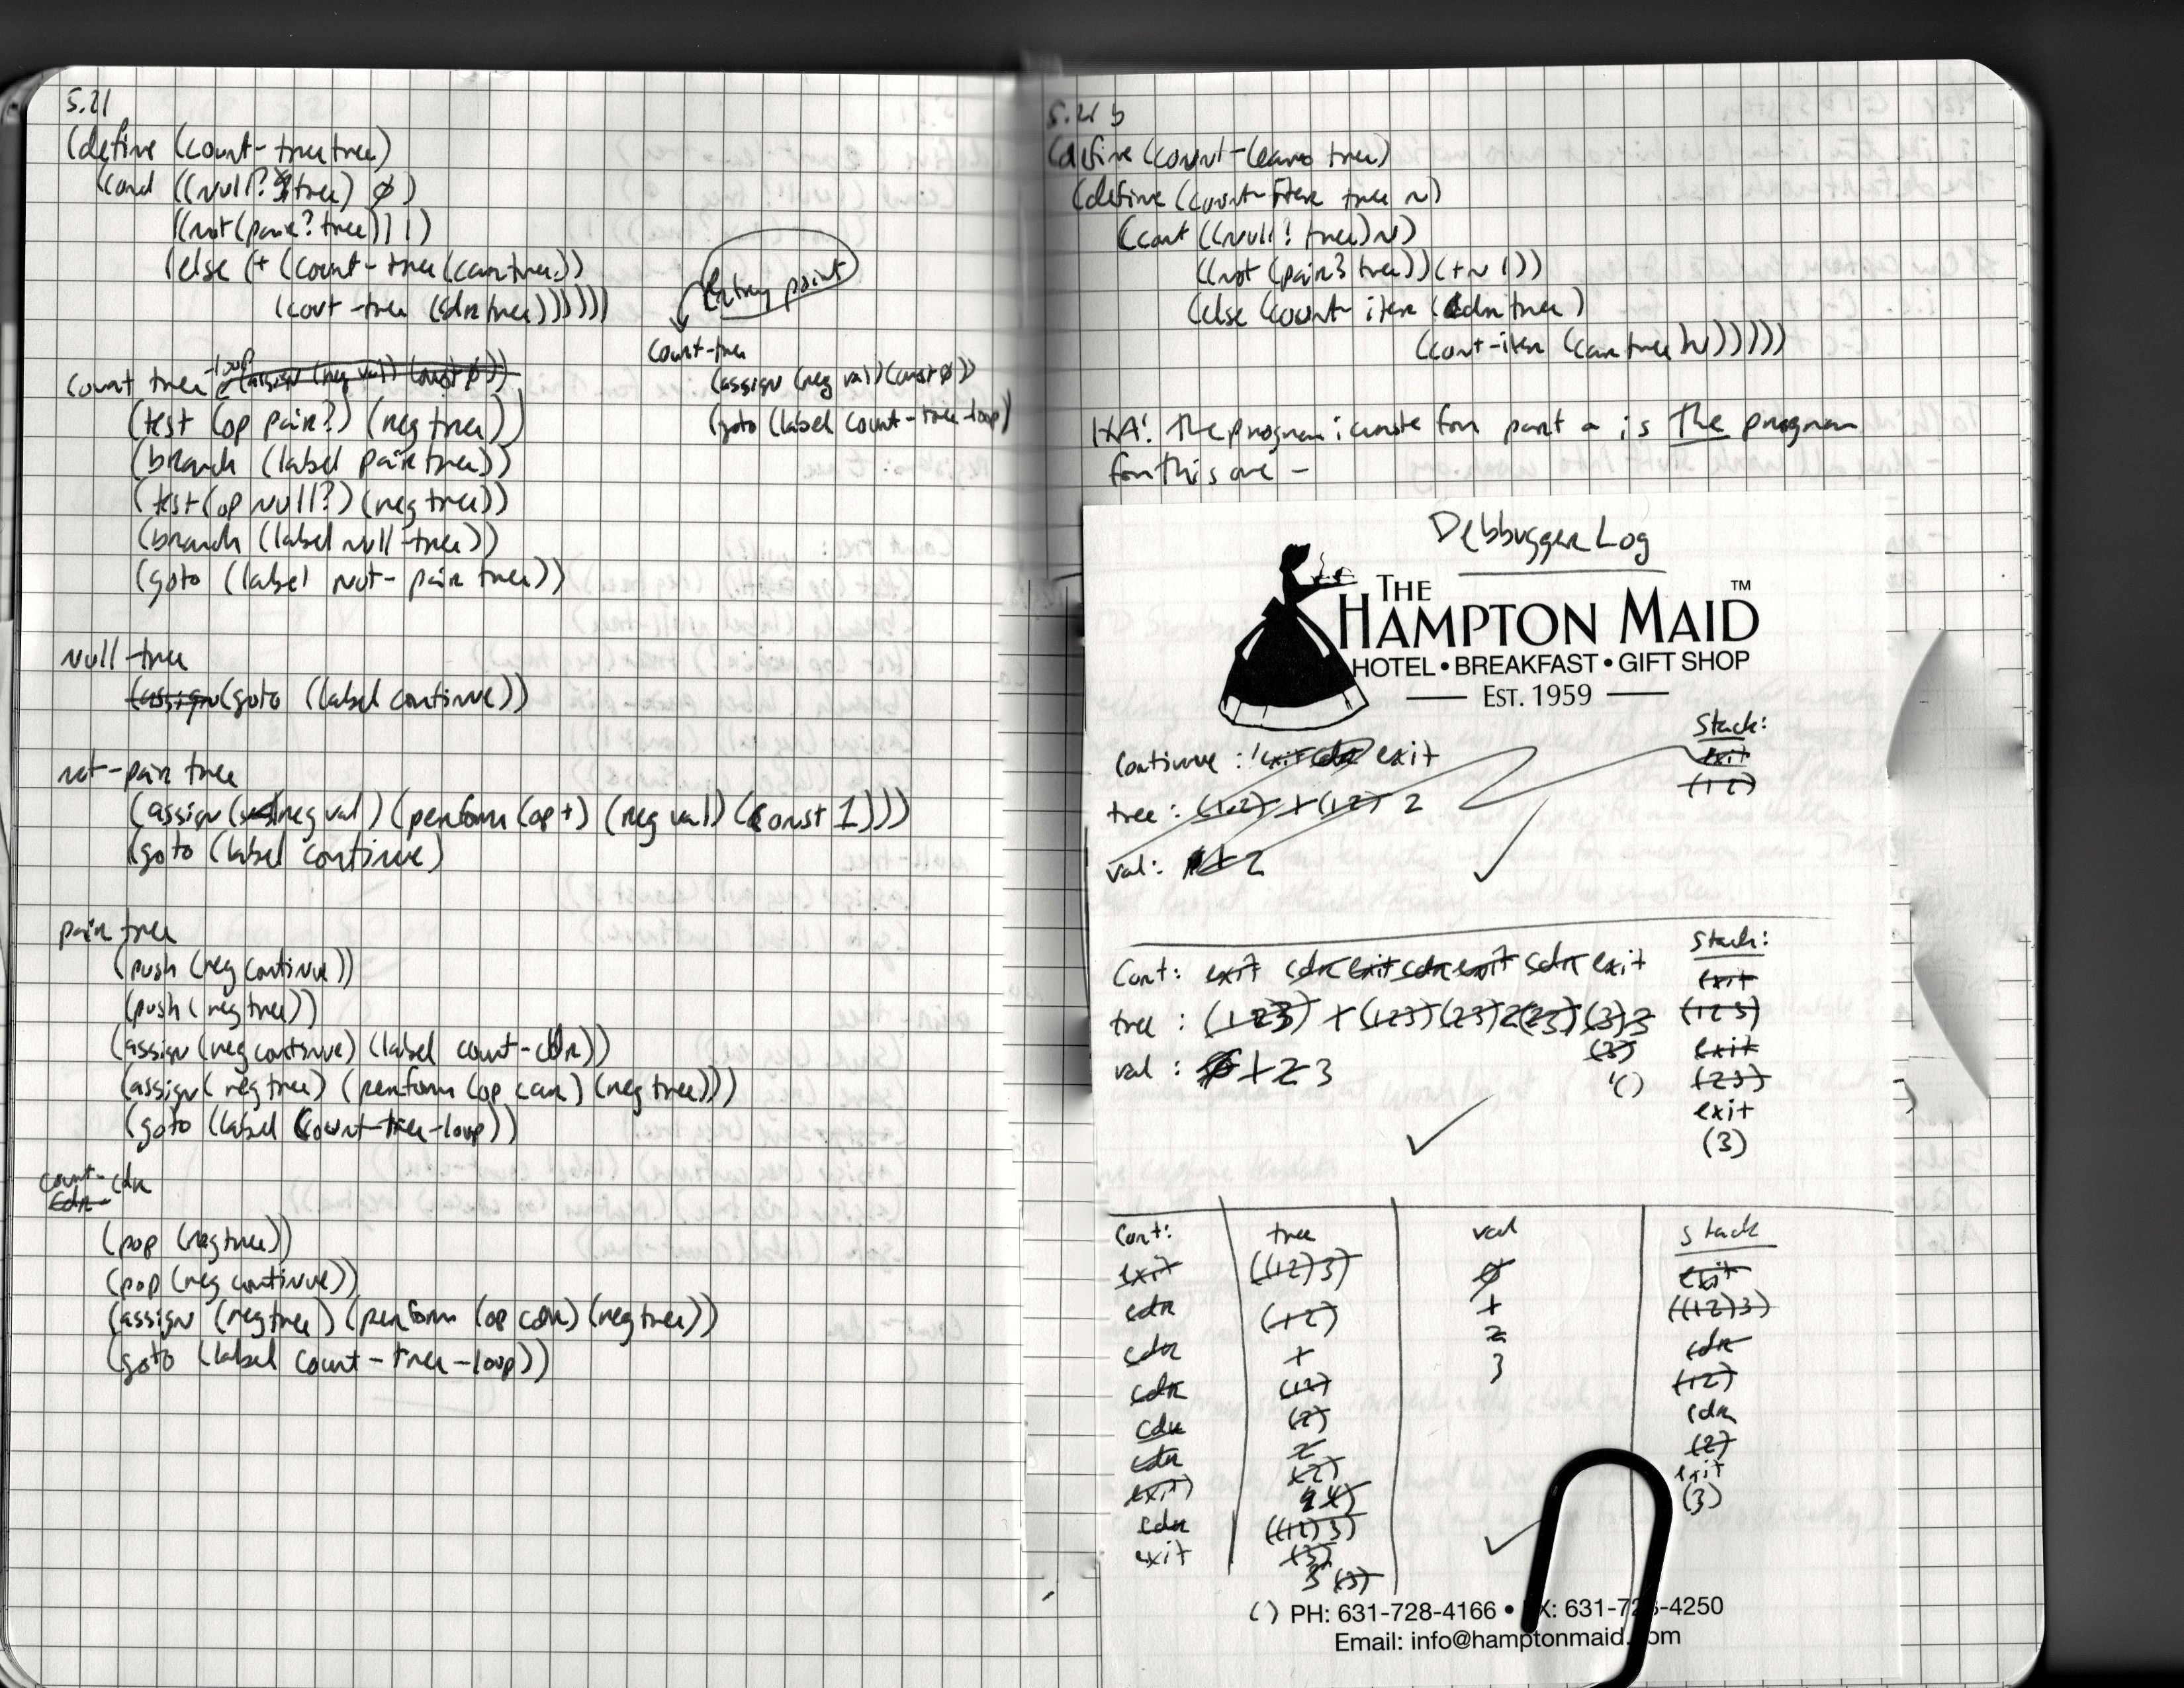 5.21
(define (count-tree tree)
(cond ((null? tree) 0)
((not (pair? tree)) 1)
(else (+ (count-tree (car tree))
(cout-tree (cdr tree))))))
Entry point
count-tree
(assign (reg val) (const 0))
(goto (label count-tree-loop)
count tree-loop (assign (reg val) (const 0))
(test (op pair?) (reg tree))
(branch (label pair tree))
(test (op null?) (reg tree))
(branch (label null-tree))
(goto (label not-pair tree))
null-tree
(assign (goto (label continue))
not-pair tree
(assign (reg val) (perform (op +) (reg val) (const 1)))
(goto (label continue)
pair tree
(push (reg continue))
(push (reg tree))
(assign (reg continue) (label count-cdr))
(assign (reg tree) (perform (op car) (reg tree)))
(goto (label count-tree-loop))
count-cdr
cdr-
(pop (reg tree))
(pop (reg continue))
(assign (reg tree) (perform (op cdr) (reg tree))
(goto (label count-tree-loop))
5.21 b
(define (count-leaves tree)
(define (count-iter tree n)
(cont ((null? tree) n)
((not (pair? tree)) (+ n 1))
(else (count-iter (cdr tree)
(cont-iter (car tree) n)))))
HA! The program i wrote for part a is The program
for this one -
Debbugger Log
THE
HAMPTON MAID™
HOTEL • BREAKFAST • GIFT SHOP
EST. 1959
Stack:
exit
(1 2)
Continue: exit cdr exit
tree: (1 2) 1 (1 2) 2
val: 0 1 2
Cont: exit cdr exit cdr exit cdr exit
tree: (1 2 3) 1 (1 2 3) (2 3) 2 (2 3) (3) 3
(3)
'()
val: 0 1 2 3
Stack:
exit
(1 2 3)
exit
(2 3)
exit
(3)
Cont: tree val stack
exit ((1 2) 3) 0 exit
cdr (1 2) 1 ((1 2) 3)
cdr 1 2 cdr
cdr (1 2) 3 (1 2)
cdr (2) cdr
cdr 2 (2)
exit (2) exit
cdr ((1 2) 3) (3)
exit (3)
3 (3)
() PH: 631-728-4166 • FX: 631-728-4250
Email: info@hamptonmaid.com